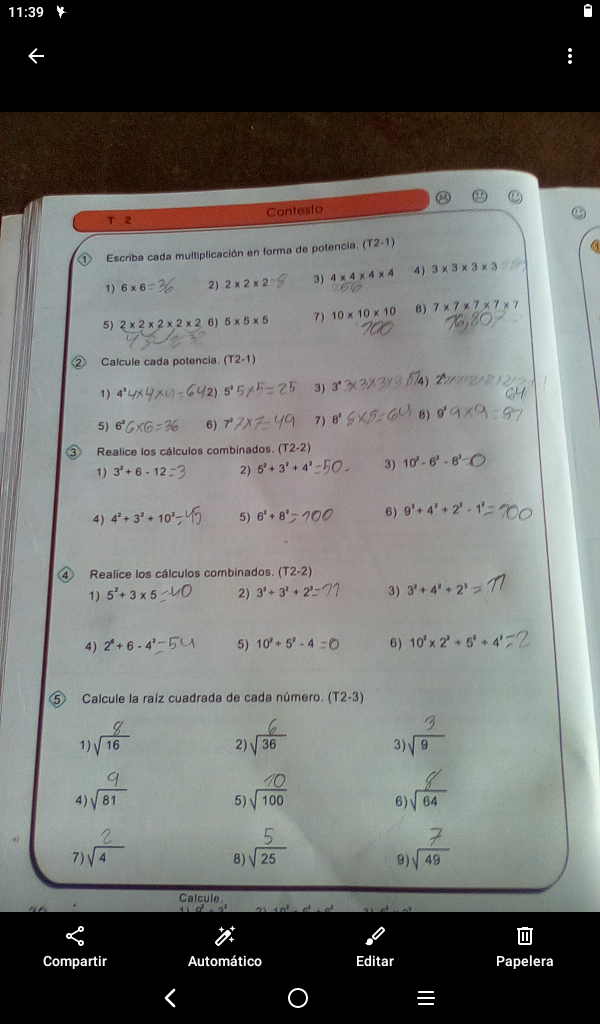 11:39
T 2 Contesto
1 Escriba cada multiplicación en forma de potencia. (T2-1)
1) 6 x 6 = 36 2) 2 x 2 x 2 = 8 3) 4 x 4 x 4 x 4 4) 3 x 3 x 3 x 3
5) 2 x 2 x 2 x 2 x 2 6) 5 x 5 x 5 7) 10 x 10 x 10 8) 7 x 7 x 7 x 7 x 7
100 16,807
2 Calcule cada potencia. (T2-1)
1) 4³ 4x4x4=64 2) 5² 5x5=25 3) 3⁴ 3x3x3x3 4) 64
5) 6² 6x6=36 6) 7² 7x7=49 7) 8² 8x8=64 8) 9² 9x9=81
3 Realice los cálculos combinados. (T2-2)
1) 3² + 6 - 12 = 3 2) 5² + 3² + 4² = 50 3) 10² - 6² - 8² = 0
4) 4² + 3² + 10² = 45 5) 6² + 8² = 100 6) 9² + 4² + 2² - 1² = 100
4 Realice los cálculos combinados. (T2-2)
1) 5² + 3 x 5 = 40 2) 3³ ÷ 3² + 2³ = 11 3) 3² + 4² ÷ 2³ = 11
4) 2⁶ + 6 - 4² = 54 5) 10² ÷ 5² - 4 = 0 6) 10² x 2² ÷ 5² ÷ 4² = 2
5 Calcule la raíz cuadrada de cada número. (T2-3)
8 6 3
1) √16 2) √36 3) √9
9 10 8
4) √81 5) √100 6) √64
2 5 7
7) √4 8) √25 9) √49
Calcule.
Compartir Automático Editar Papelera